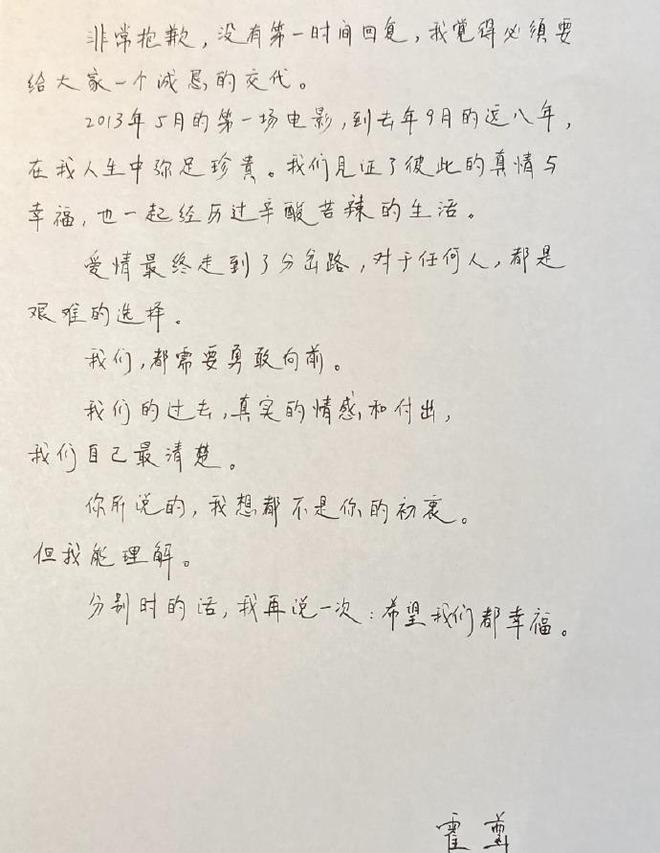 非常抱歉，没有第一时间回复，我觉得必须要
给大家一个诚恳的交代。
2013年5月的第一场电影，到去年9月的这八年，
在我人生中弥足珍贵。我们见证了彼此的真情与
幸福，也一起经历过辛酸苦辣的生活。
爱情最终走到了分岔路，对于任何人，都是
艰难的选择。
我们，都需要勇敢向前。
我们的过去，真实的情感和付出，
我们自己最清楚。
你所说的，我想都不是你的初衷。
但我能理解。
分别时的话，我再说一次：希望我们都幸福。
霍尊